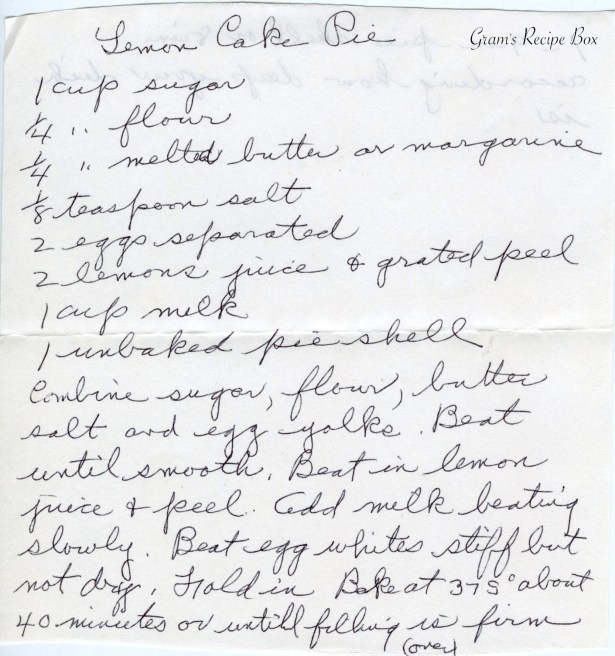 Lemon Cake Pie
Gram's Recipe Box
1 cup sugar
1/4 " flour
1/4 " melted butter or margarine
1/8 teaspoon salt
2 eggs separated
2 lemons juice & grated peel
1 cup milk
1 unbaked pie shell
Combine sugar, flour, butter
salt and egg yolks. Beat
until smooth. Beat in lemon
juice & peel. Add milk beating
slowly. Beat egg whites stiff but
not dry. Fold in Bake at 375° about
40 minutes or untill filling is firm
(over)